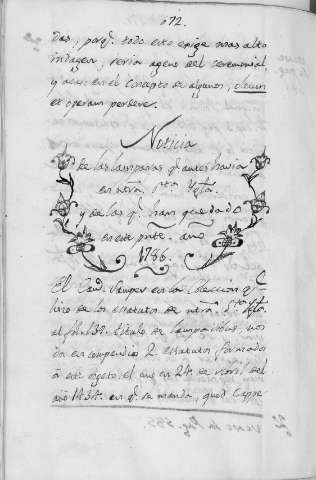 172.
das, porq.e todo esto exige mas alto
indagar, seria ageno del ceremonial
y acaso en el concepto de algunos, oleum
et operam perdere.
Noticia
de las lamparas q.e antes havia
en nrã. S.ta Ygl.a
y de las q.e han quedado
en este pnte. año
1786.
El Can.o Samper en la Coleccion q.e
hizo de los estatutos de nrã. S.ta Ygl.a
al fol. 137. titulo de Lampadibus, nos
da en compendio 2. estatutos formados
â este objeto: el uno en 24. de del
año 1434. en q.e se manda, quod Cappe